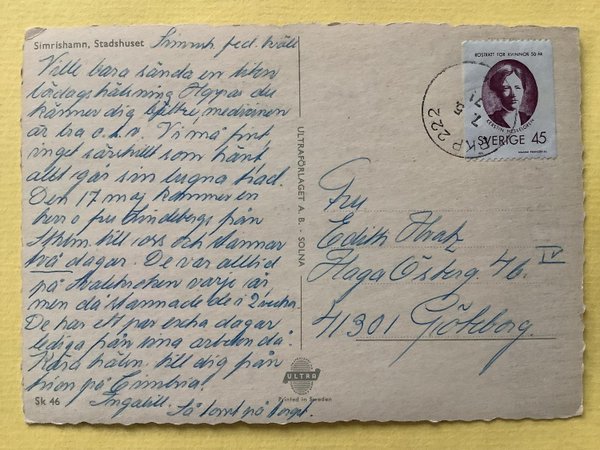 Simrishamn, Stadshuset
Simrh fred. kväll
Ville bara sända en liten
lördagshälsning. Hoppas du
känner dig bättre, medicinen
är bra o.s.v. Vi må fint
inget särskilt som hänt
allt igår som lugna stad.
Den 17 maj kommer en
herr o fru Lindebergs från
till oss och stannar
två dagar. De var alltid
på varje år,
men då stannade de i 2 veckor
De har ett par extra dagar
lediga från sina arbeten då.
Kära hälsn. till dig från
på Cimbria.
Ingalill.
Så torrt på torget.
Sk 46
ULTRAFÖRLAGET A. B. - SOLNA
ULTRA
Printed in Sweden
RÖSTRÄTT FÖR KVINNOR 50 ÅR
KERSTIN HESSELGREN
SVERIGE 45
PKP 222
7. 5
71
Fru
Edith
Haga Östberg. 46 IV
41301 Göteborg.